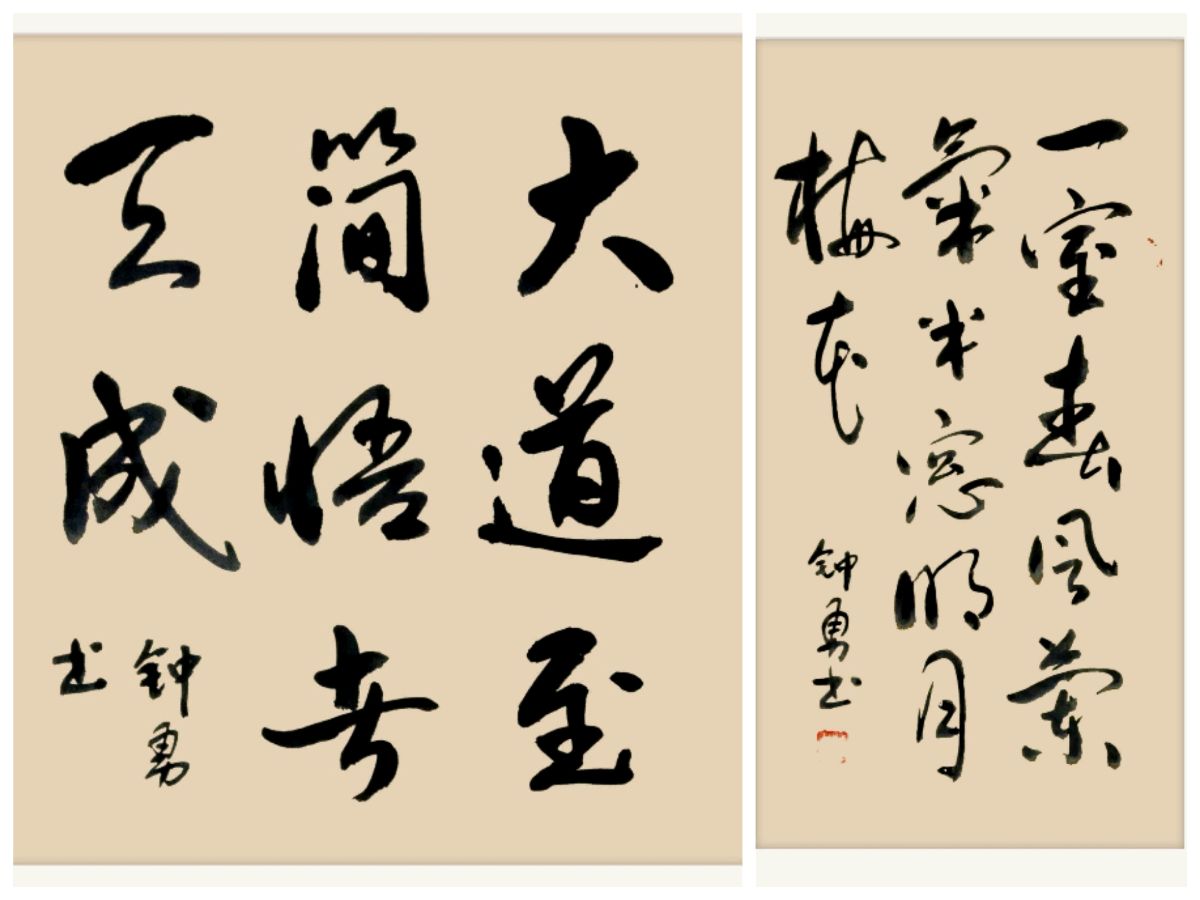 大道至
简悟者
天成
钟勇
书
一室春风兰
氣半窓明月
梅花
钟勇书